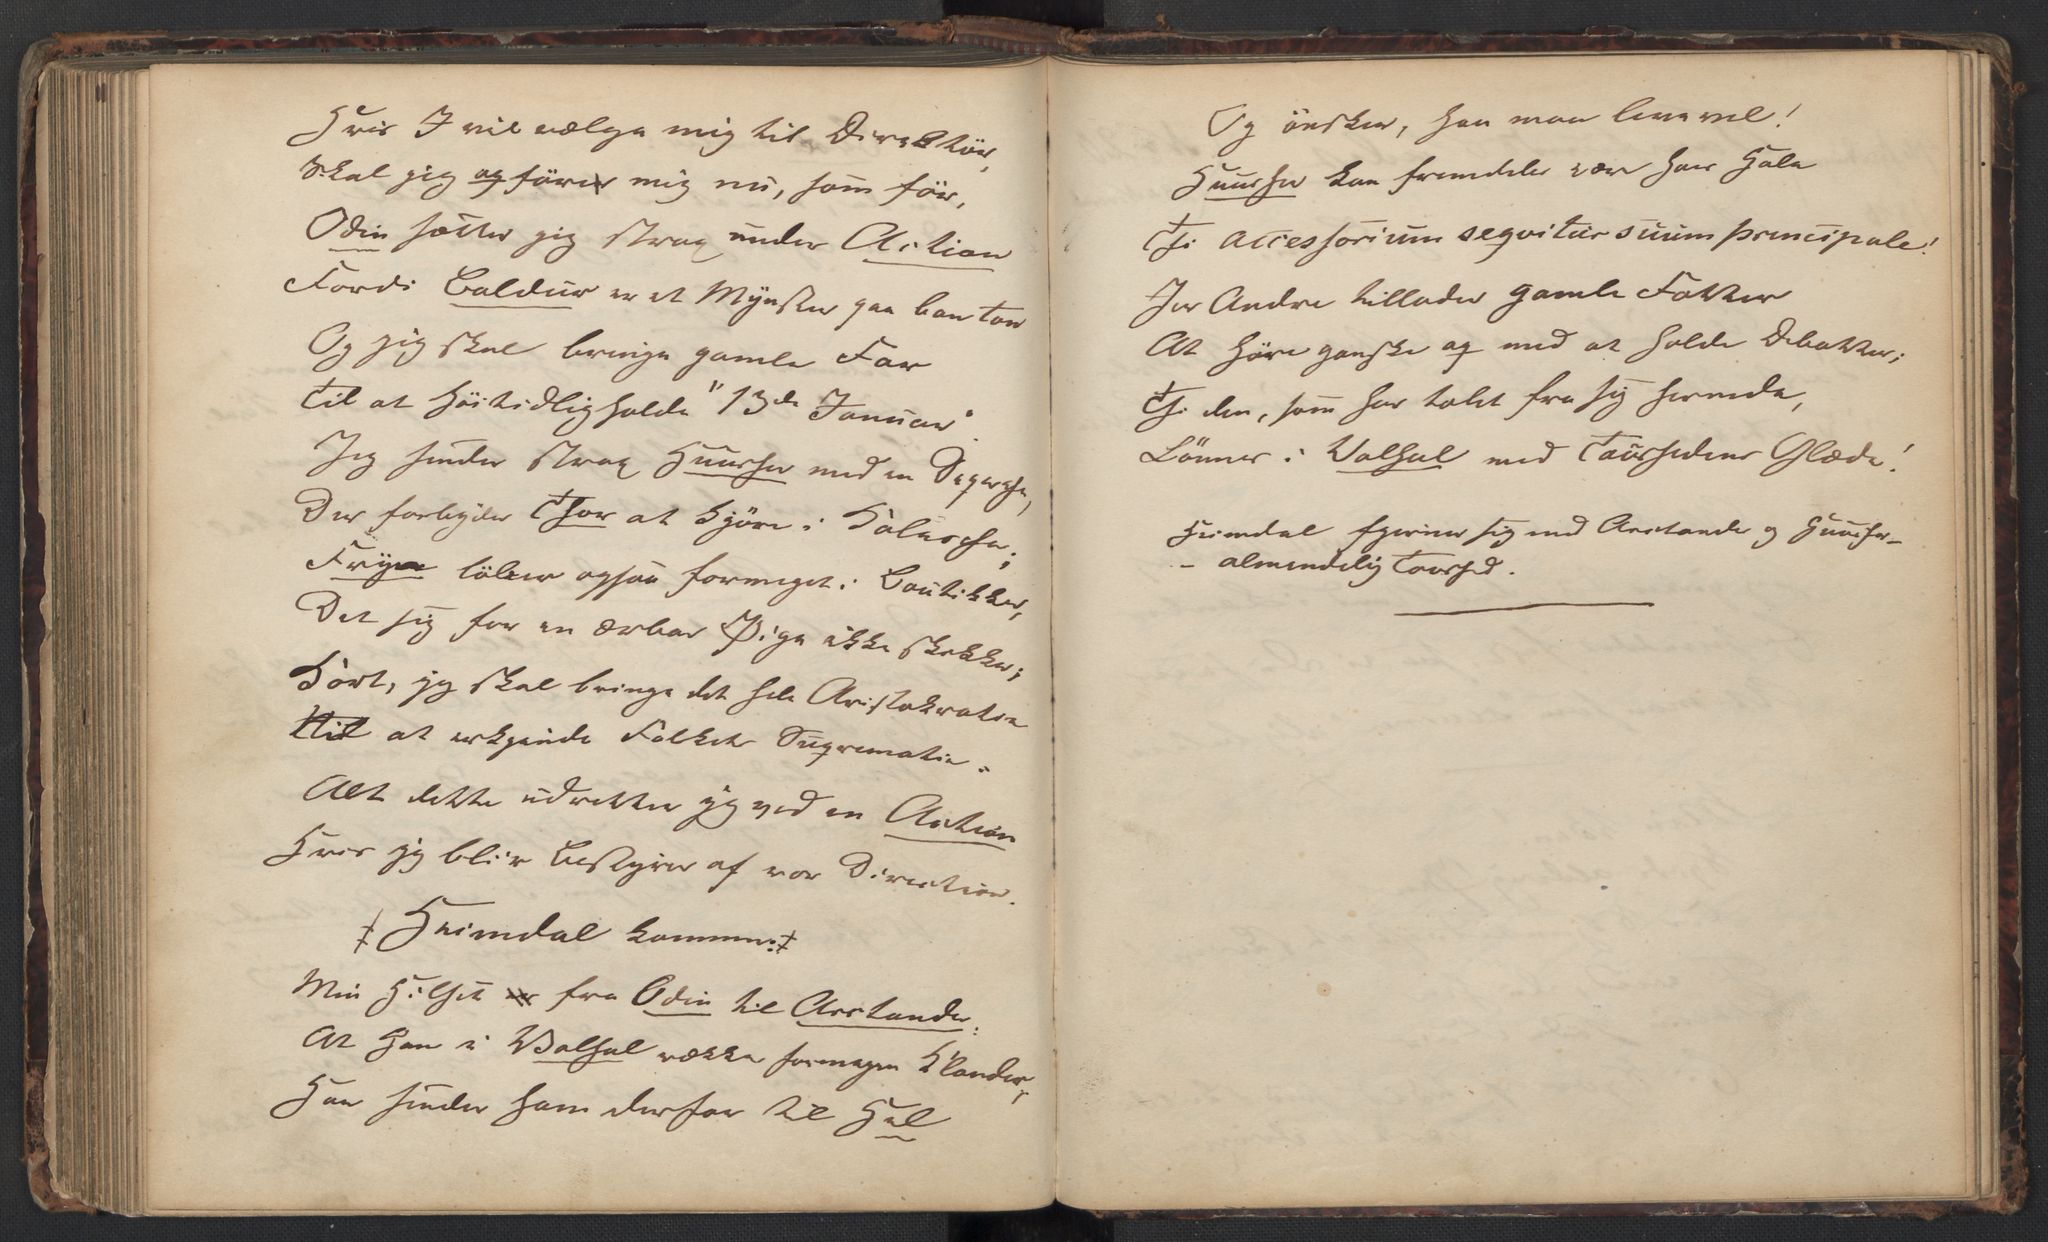 Hvis I vil vælge mig til Direktör,
Skal jeg opföre mig nu, som för,
Odin sætter jeg strax under Action
Fordi Baldur er et Mynster paa bon ton
Og jeg skal bringe gamle Far
Til at höitidligholde "13de Januar".
Jeg sender strax Huusher med en Depesche,
Der forbyder Thor at kjöre i Kalesche;
Freya löber ogsaa formeget i Boutikker,
Det sig for en ærbar Pige ikke skikker;
Kort, jeg skal bringe det hele Aristokratie
til at erkjende Folkets Suprematie.
Alt dette udretter jeg ved en Action
Hvis jeg bliver Bestyrer af vor Direction.
Heimdal kommer:
Min Hilsen er fra Odin til Arslander,
At han i Valhal vækker formegen Klander,
Han sender ham derfor til Hel
Og önsker, han maa leve vel!
Huusher kan fremdeles være hans Hale
Thi Accessorium seqvitur suum principale!
Jer Andre tillader gamle Fatter
At höre ganske op med at holde Debatter;
Thi den, som har talet fra sig hernede,
Lönnes i Valhal med Taushedens Glæde!
Heimdal fjerner sig med Arslander og Huusher –
– almindelig Taushed.